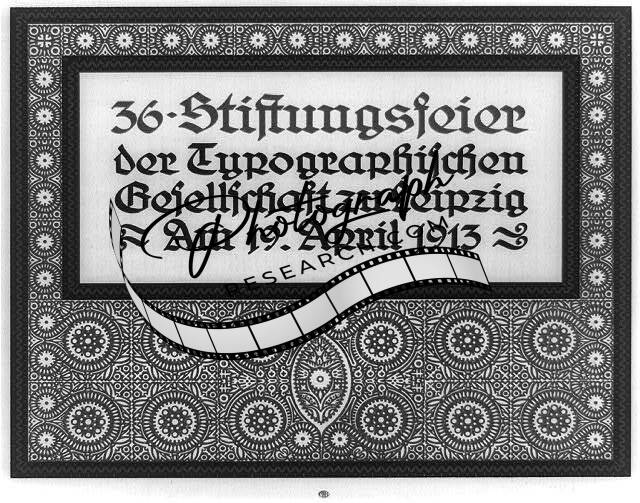 36. Stiftungsfeier
der Typographischen
Gesellschaft zu Leipzig
Am 19. April 1913
Photograph
RESEARCH.COM